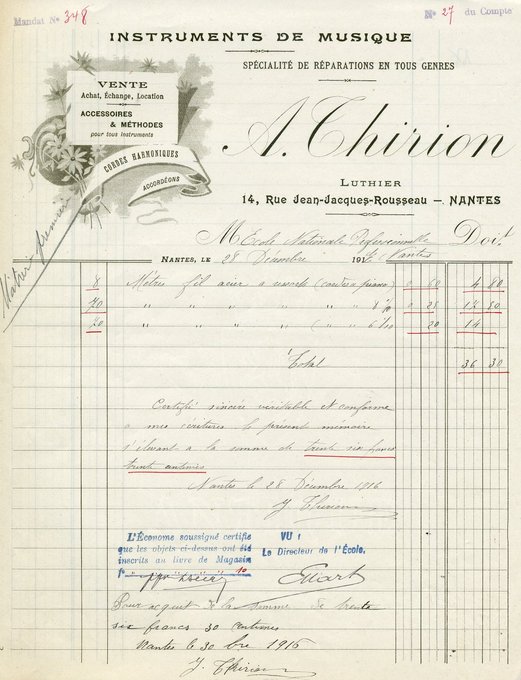 Mandat No 348
No 27 du Compte
INSTRUMENTS DE MUSIQUE
SPÉCIALITÉ DE RÉPARATIONS EN TOUS GENRES
VENTE
Achat, Échange, Location
ACCESSOIRES
& MÉTHODES
pour tous Instruments
CORDES HARMONIQUES
ACCORDÉONS
A. Thirion
LUTHIER
14, Rue Jean-Jacques-Rousseau — NANTES
M Ecole Nationale Professionnelle Doit
NANTES, LE 28 Décembre 1916 Nantes
8 Mètres fil acier à ressorts 0 60 4 80
70 " " " " 0 25 17 50
70 " " " " 20 14
Total 36 30
Certifié sincère véritable et conforme
à mes écritures le présent mémoire
s'élevant à la somme de trente six francs
trente centimes
Nantes le 28 Décembre 1916
J. Thirion
L'Économe soussigné certifie
que les objets ci-dessus ont été
inscrits au livre de Magasin
fo 10
VU :
Le Directeur de l'École,
Pour acquit de la somme de trente
six francs 30 centimes
Nantes le 30 bre 1916
J. Thirion